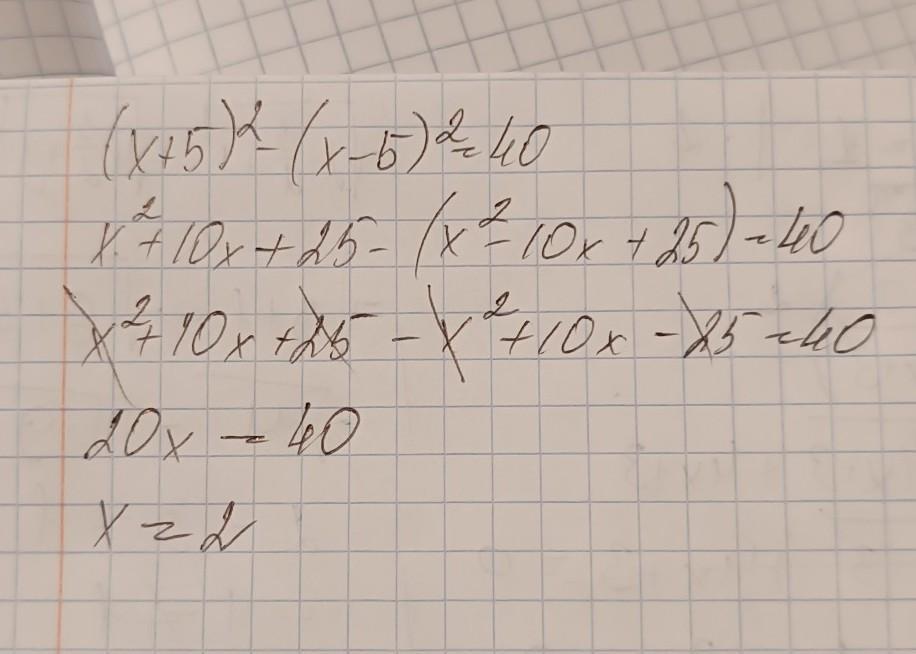 (x+5)² - (x-5)² = 40
x² + 10x + 25 - (x² - 10x + 25) = 40
x² + 10x + 25 - x² + 10x - 25 = 40
20x = 40
x = 2